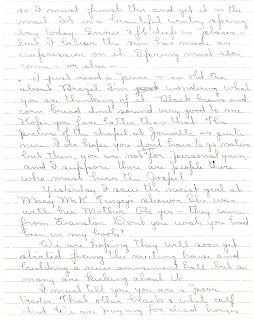 so I must finish this and get it in the
mail. It is a beautiful wintry spring
day today. Snow 2 ft deep in places
but I believe the sun has made an
impression on it. Spring must soon
come - or else -
I just read a piece in an old Era
about Brazil. I'm just wondering what
you are thinking of it. Black beans and
corn bread don't sound very good to me.
Hope you fare better than that. The
picture of the chapel at Joinville is quite
nice. I do hope you don't have to go native
but then, you are not for personal gain,
and I suppose there are people there
who must hear the Gospel.
Yesterday I saw the nicest girl at
Mary McK. Tingey's shower. She was
with her Mother. Oh yes - they came
from Evanston. Don't you wish you had
been in my place?
We are hoping they will soon get
started fixing the meeting house and
building a new amusement hall but so
many are kicking about it.
I must tell you you are a poor
trader. That other black & white calf
died. We are paying for dead horses